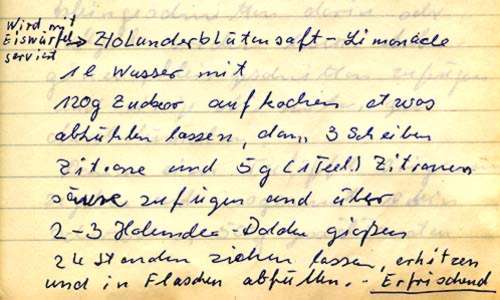 Wird mit
Eiswürfel
serviert
→ Holunderblütensaft-Limonade
1 l Wasser mit
120g Zucker aufkochen etwas
abkühlen lassen, dann 3 Scheiben
Zitrone und 5g (1 Teel.) Zitronen
säure zufügen und über
2-3 Holunder-Dolden gießen
24 Stunden ziehen lassen, erhitzen
und in Flaschen abfüllen. - Erfrischend